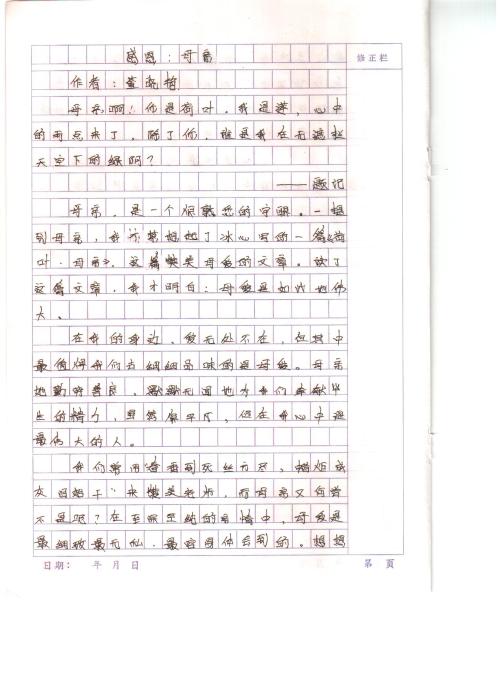 感恩：母亲
修正栏
作者：董
母亲啊！你是荷叶，我是莲，心中
的雨点来了，除了你，谁是我在无遮拦
天空下的绿荫？
——题记
母亲，是一个很熟悉的字眼。一想
到母亲，我常想起了冰心写的一篇《荷
叶·母亲》，这篇赞美母爱的文章。读了
这篇文章，我才明白：母爱是如此地伟
大。
在我的身边，爱无处不在，但其中
最值得我们去细细品味的是母爱。母亲
她勤劳善良，默默无闻地为我们奉献毕
生的精力，虽然平凡，但在我心中是
最伟大的人。
我们常用“春蚕到死丝方尽，蜡炬成
灰泪始干”来赞美老师，而母亲又何尝
不是呢？在至至纯的情中，母爱是
最细致最无私，最容易体会到的。想想
日期： 年 月 日
第 页